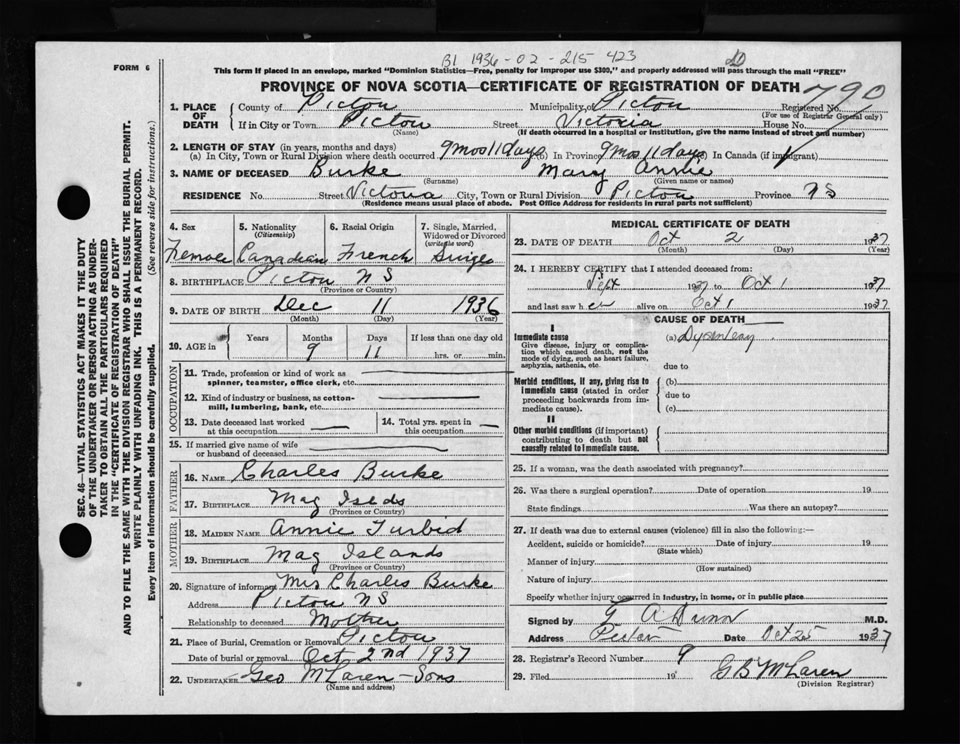 B1 1936-02-215 423
FORM 6
This form if placed in an envelope, marked "Dominion Statistics—Free, penalty for improper use $300," and properly addressed will pass through the mail "FREE"
PROVINCE OF NOVA SCOTIA—CERTIFICATE OF REGISTRATION OF DEATH 790
1. PLACE OF DEATH County of Pictou Municipality of Pictou Registered No.
(For use of Registrar General only)
If in City or Town Pictou Street Victoria House No.
(Name) (If death occurred in a hospital or institution, give the name instead of street and number)
2. LENGTH OF STAY (in years, months and days)
(a) In City, Town or Rural Division where death occurred 9 mos 11 days (b) In Province 9 Mos 11 days (c) In Canada (if immigrant)
3. NAME OF DECEASED Burke Mary Annie
(Surname) (Given name or names)
RESIDENCE No. Street Victoria City, Town or Rural Division Pictou Province N S
(Residence means usual place of abode. Post Office Address for residents in rural parts not sufficient)
4. Sex 5. Nationality (Citizenship) 6. Racial Origin 7. Single, Married, Widowed or Divorced (write the word)
Female Canadian French Single
8. BIRTHPLACE Pictou N S
(Province or Country)
9. DATE OF BIRTH Dec 11 1936
(Month) (Day) (Year)
10. AGE in Years Months Days If less than one day old
9 11 hrs. or min.
OCCUPATION
11. Trade, profession or kind of work as spinner, teamster, office clerk, etc.
12. Kind of industry or business, as cotton-mill, lumbering, bank, etc.
13. Date deceased last worked at this occupation 14. Total yrs. spent in this occupation
15. If married give name of wife or husband of deceased
FATHER
16. NAME Charles Burke
17. BIRTHPLACE Mag Islds
(Province or Country)
MOTHER
18. MAIDEN NAME Annie Turbid
19. BIRTHPLACE Mag Islands
(Province or Country)
20. Signature of informant Mrs Charles Burke
Address Pictou N S
Relationship to deceased Mother
21. Place of Burial, Cremation or Removal Pictou
Date of burial or removal Oct 2nd 1937
22. UNDERTAKER Geo McLaren - Sons
(Name and address)
MEDICAL CERTIFICATE OF DEATH
23. DATE OF DEATH Oct 2 1937
(Month) (Day) (Year)
24. I HEREBY CERTIFY that I attended deceased from:
Sept 1937 to Oct 1 1937
and last saw her alive on Oct 1 1937
CAUSE OF DEATH
I
Immediate cause (a) Dysentery
Give disease, injury or complication which caused death, not the mode of dying, such as heart failure, asphyxia, asthenia, etc.
due to
Morbid conditions, if any, giving rise to immediate cause (stated in order proceeding backwards from immediate cause). (b)
due to
(c)
II
Other morbid conditions (if important) contributing to death but not causally related to immediate cause.
25. If a woman, was the death associated with pregnancy?
26. Was there a surgical operation? Date of operation 19
State findings Was there an autopsy?
27. If death was due to external causes (violence) fill in also the following:—
Accident, suicide or homicide? Date of injury 19
(State which)
Manner of injury
(How sustained)
Nature of injury
Specify whether injury occurred in industry, in home, or in public place
Signed by G A Dunn M.D.
Address Date Oct 25 1937
28. Registrar's Record Number 9
29. Filed 19 G B McLaren
(Division Registrar)
SEC. 46—VITAL STATISTICS ACT MAKES IT THE DUTY
OF THE UNDERTAKER OR PERSON ACTING AS UNDER-
TAKER TO OBTAIN ALL THE PARTICULARS REQUIRED
IN THE "CERTIFICATE OF REGISTRATION OF DEATH"
AND TO FILE THE SAME WITH THE DIVISION REGISTRAR WHO SHALL ISSUE THE BURIAL PERMIT.
WRITE PLAINLY WITH UNFADING INK. THIS IS A PERMANENT RECORD.
Every item of information should be carefully supplied. (See reverse side for instructions.)